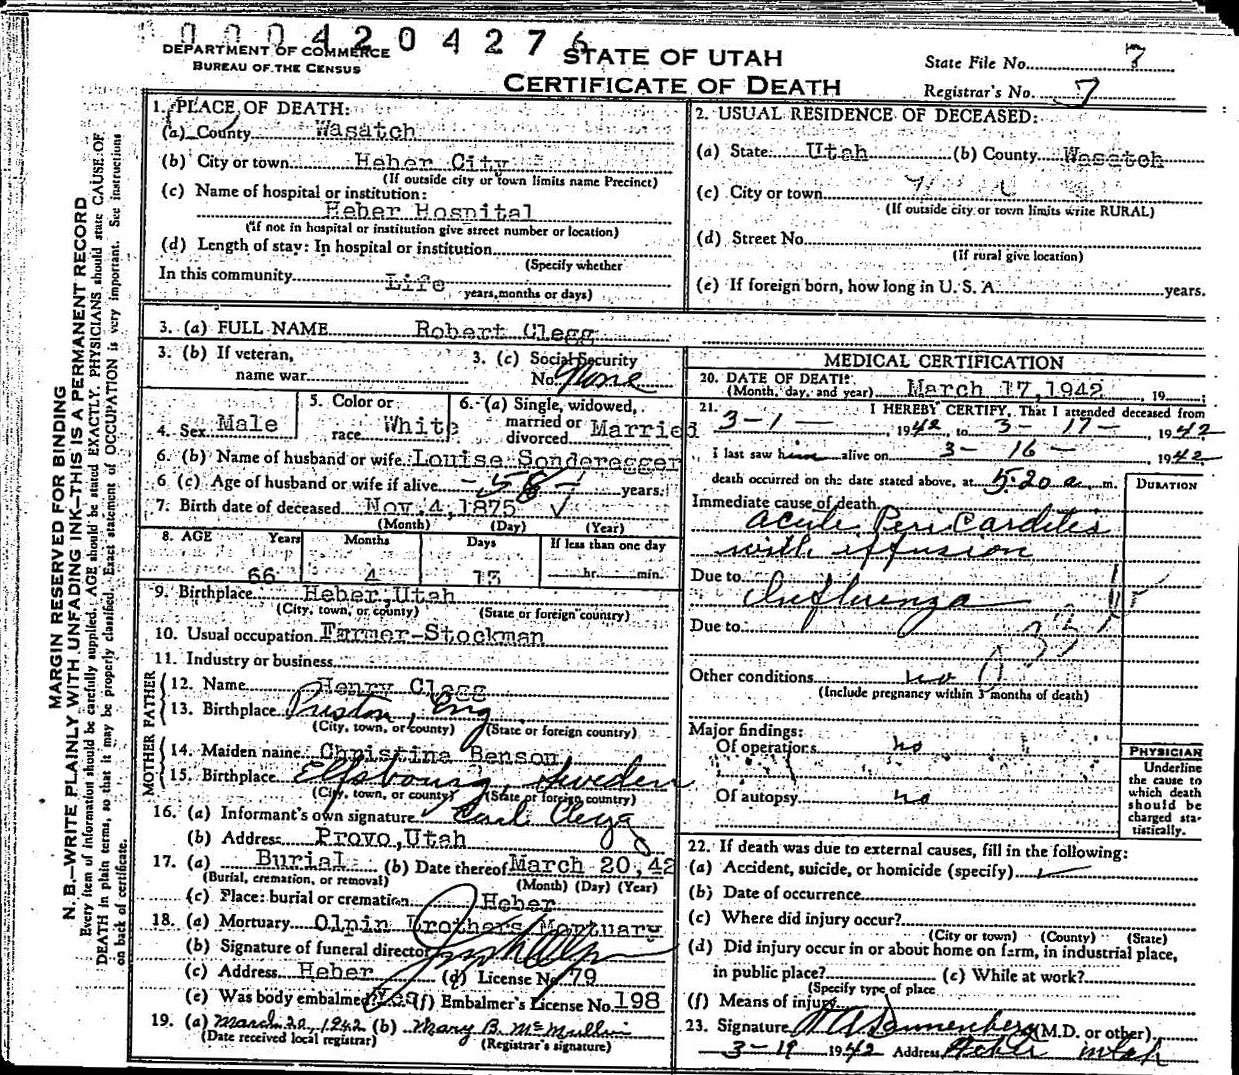 0004204276
DEPARTMENT OF COMMERCE
BUREAU OF THE CENSUS
STATE OF UTAH
CERTIFICATE OF DEATH
State File No. 7
Registrar's No. 7
MARGIN RESERVED FOR BINDING
N. B.—WRITE PLAINLY WITH UNFADING INK—THIS IS A PERMANENT RECORD
Every item of information should be carefully supplied. AGE should be stated EXACTLY. PHYSICIANS should state CAUSE OF
DEATH in plain terms, so that it may be properly classified. Exact statement of OCCUPATION is very important. See instructions
on back of certificate.
1. PLACE OF DEATH:
(a) County Wasatch
(b) City or town Heber City
(If outside city or town limits name Precinct)
(c) Name of hospital or institution:
Heber Hospital
(If not in hospital or institution give street number or location)
(d) Length of stay: In hospital or institution
(Specify whether
In this community Life
years, months or days)
2. USUAL RESIDENCE OF DECEASED:
(a) State Utah (b) County Wasatch
(c) City or town
(If outside city or town limits write RURAL)
(d) Street No.
(If rural give location)
(e) If foreign born, how long in U. S. A. years.
3. (a) FULL NAME Robert Clegg
3. (b) If veteran,
name war
3. (c) Social Security
No. None
4. Sex Male
5. Color or
race White
6. (a) Single, widowed,
married or
divorced Married
6. (b) Name of husband or wife Louise Sonderegger
6 (c) Age of husband or wife if alive -58- years.
7. Birth date of deceased Nov. 4, 1875 ✓
(Month) (Day) (Year)
8. AGE Years Months Days If less than one day
66 4 13 hr. min.
9. Birthplace Heber, Utah
(City, town, or county) (State or foreign country)
10. Usual occupation Farmer-Stockman
11. Industry or business
FATHER
12. Name Henry Clegg
13. Birthplace Preston, Eng
(City, town, or county) (State or foreign country)
MOTHER
14. Maiden name Christina Benson
15. Birthplace Elfsbourg, Sweden
(City, town, or county) (State or foreign country)
16. (a) Informant's own signature Carl Clegg
(b) Address Provo, Utah
17. (a) Burial (b) Date thereof March 20, 42
(Burial, cremation, or removal) (Month) (Day) (Year)
(c) Place: burial or cremation Heber
18. (a) Mortuary Olpin Brothers Mortuary
(b) Signature of funeral director
(c) Address Heber (d) License No. 79
(e) Was body embalmed? Yes (f) Embalmer's License No. 198
19. (a) March 20, 1942 (b) Mary B. McMullin
(Date received local registrar) (Registrar's signature)
MEDICAL CERTIFICATION
20. DATE OF DEATH:
(Month, day, and year) March 17, 1942, 19
21. I HEREBY CERTIFY, That I attended deceased from
3-1-, 1942 to 3-17-, 1942
I last saw him alive on 3-16- 1942
death occurred on the date stated above, at 5:20 a. m.
DURATION
Immediate cause of death
acute Pericarditis
with effusion
Due to
Influenza
Due to
33
Other conditions no
(Include pregnancy within 3 months of death)
Major findings:
Of operations no
Of autopsy no
PHYSICIAN
Underline
the cause to
which death
should be
charged sta-
tistically.
22. If death was due to external causes, fill in the following:
(a) Accident, suicide, or homicide (specify)
(b) Date of occurrence
(c) Where did injury occur?
(City or town) (County) (State)
(d) Did injury occur in or about home on farm, in industrial place,
in public place? (e) While at work?
(Specify type of place
(f) Means of injury
23. Signature Dannenberg (M.D. or other)
3-19 1942 Address Heber Utah